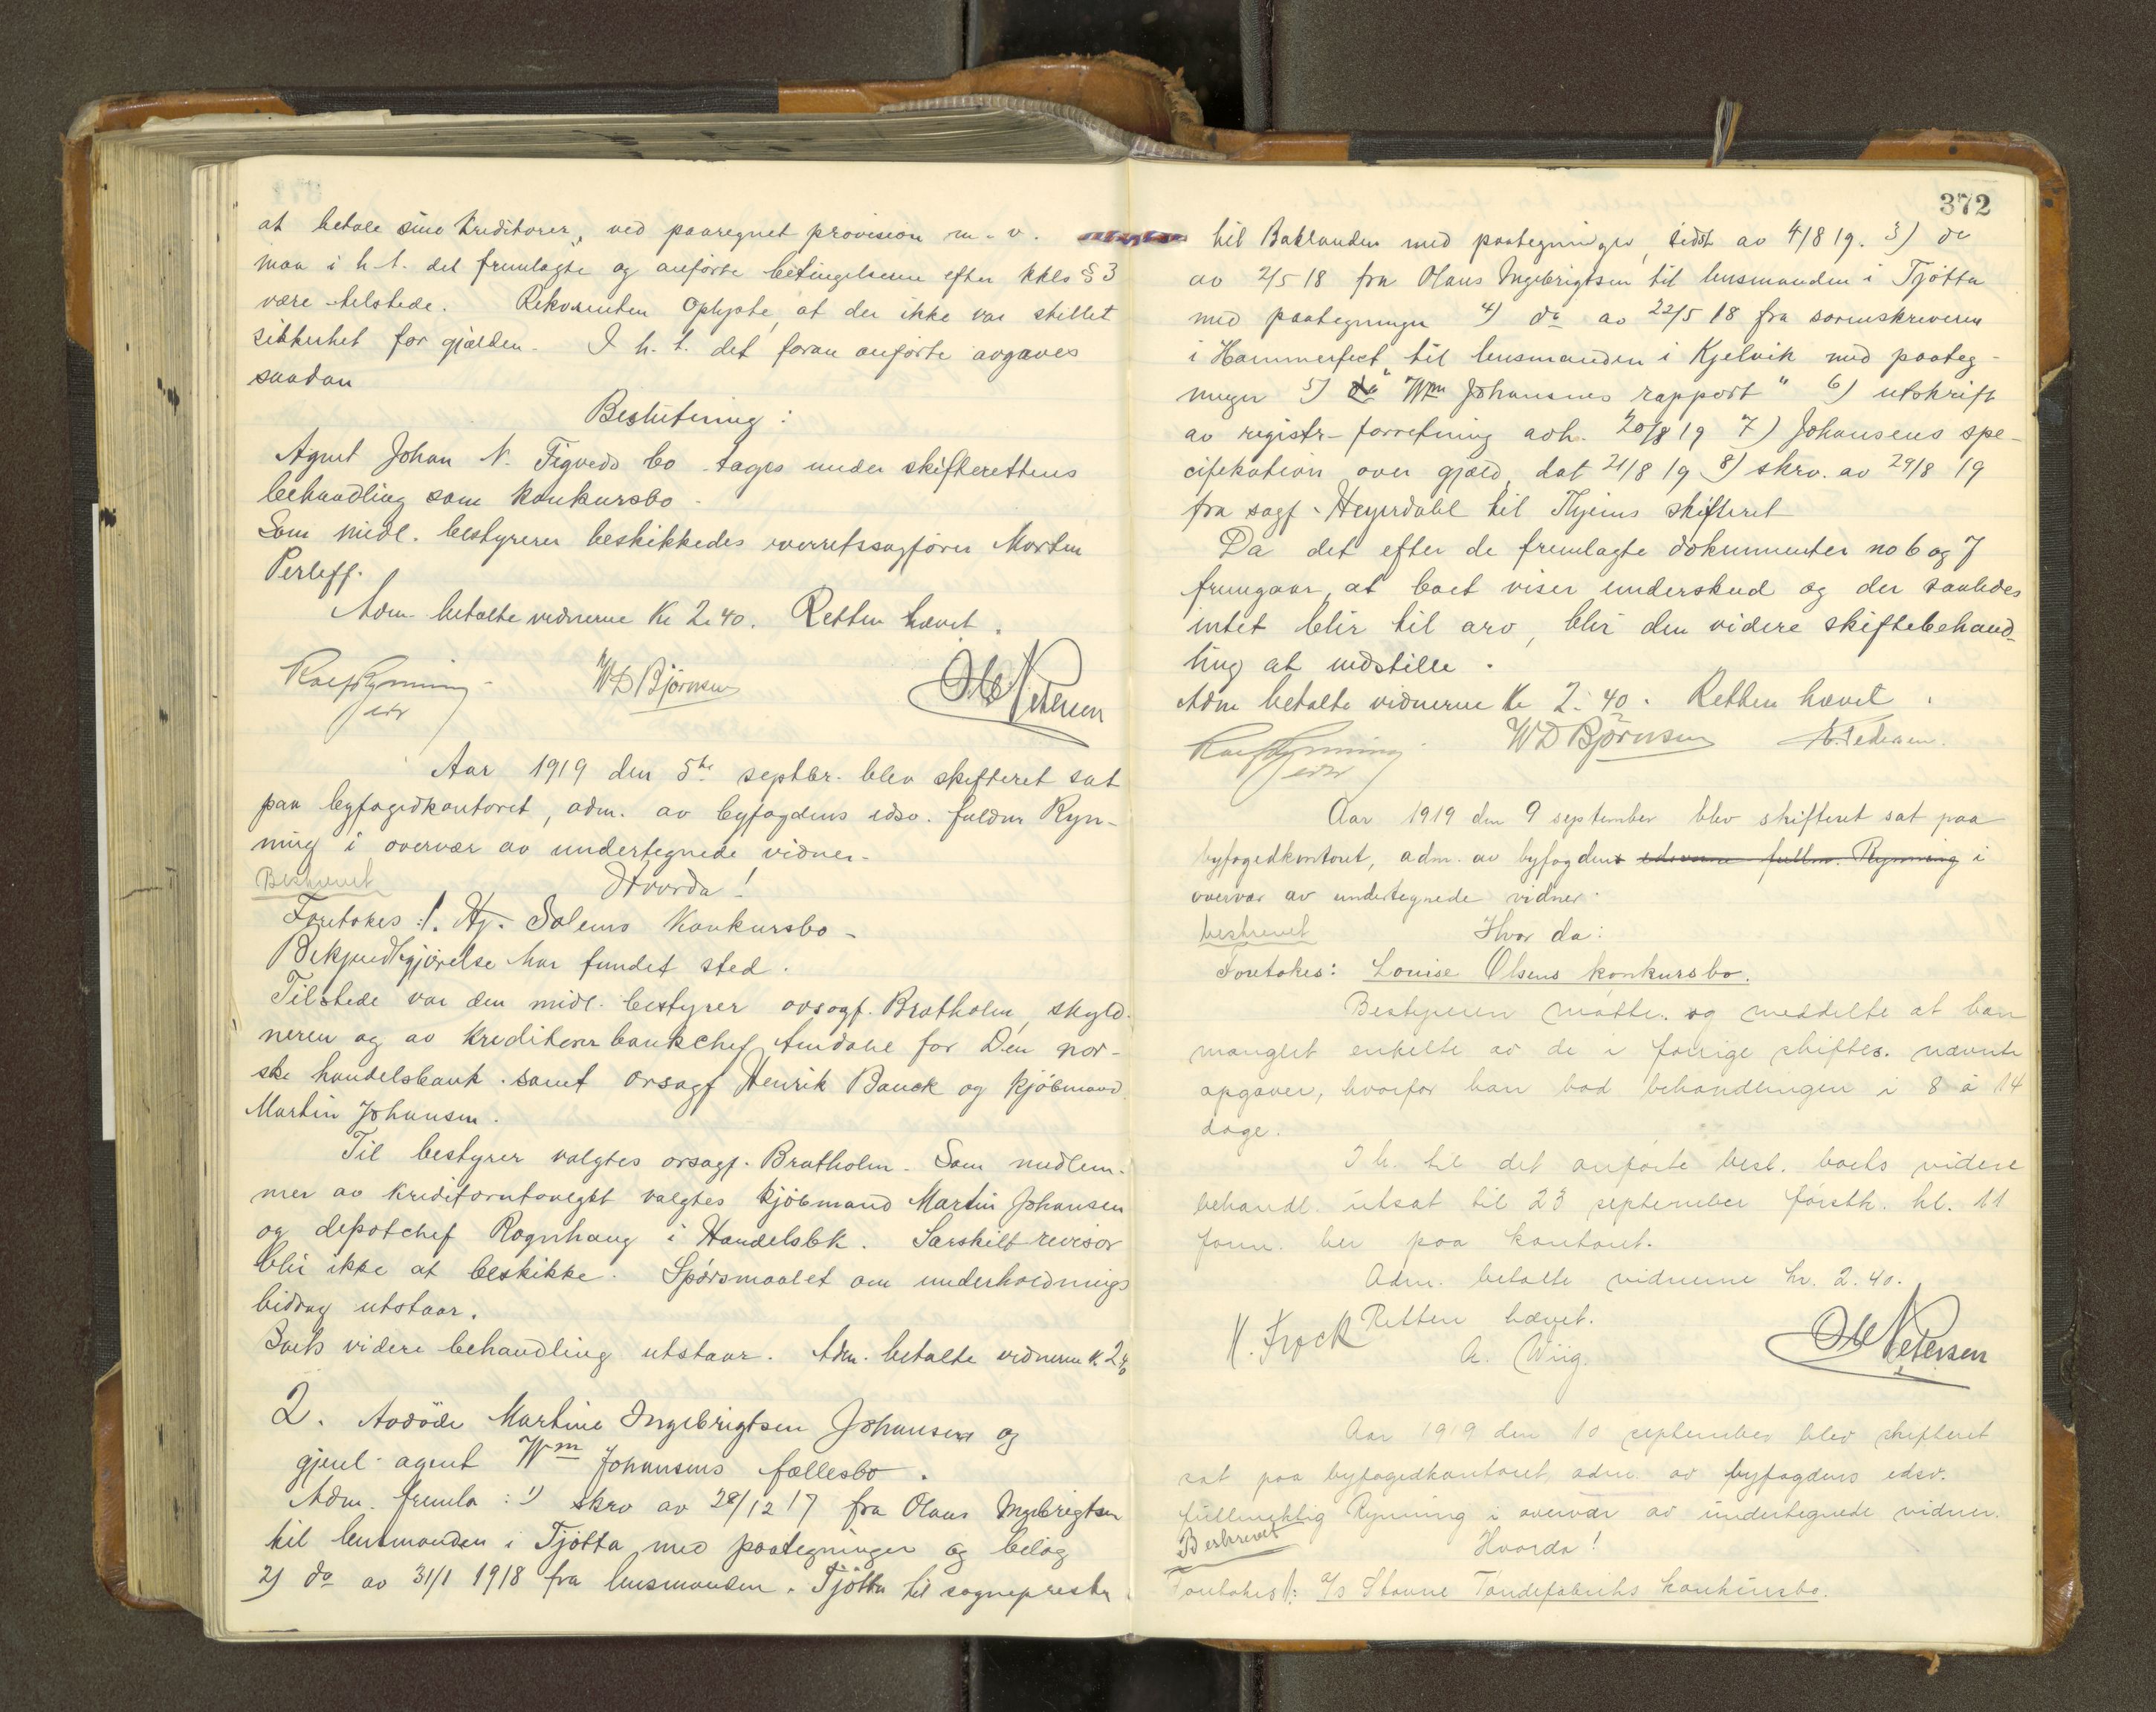 at betale sine kreditorer, ved paaregnet provision m.v.
maa i h.t. det fremlagte og anførte betingelserne efter kkls § 3
være tilstede. Rekvirenten oplyste, at der ikke var stillet
sikkerhet for gjælden. I h.t. det foran anførte avgaves
saadan
Beslutning:
Agent Johan N. Tigveds bo tages under skifterettens
behandling som konkursbo.
Som midl. bestyrer beskikkedes overretssagfører Morten
Perleff.
Adm. betalte vidnerne Kr 2.40. Retten hævet.
Rolf Rynning W D Bjørnsen Ole Petersen
edsv
Aar 1919 den 5te septbr. blev skifteret sat
paa byfogedkontoret, adm. av byfogdens edsv. fuldm Ryn-
ning i overvær av undertegnede vidner.
Beskrevet
Hvorda!
Foretokes: 1. Hj. Solems Konkursbo.
Bekjendtgjørelse har fundet sted.
Tilstede var den midl. bestyrer ovsagf. Bratholm, skyld-
neren og av kreditorer bankchef Amdahl for Den nor-
ske handelsbank. samt orsagf Henrik Bauck og kjøbmand
Martin Johansen.
Til bestyrer valgtes orsagf. Bratholm. Som medlem-
mer av kreditorutvalget valgtes kjøbmand Martin Johansen
og depotchef Rognhaug i Handelsbk. Særskilt revisor
blir ikke at beskikke. Spørsmaalet om underholdnings
bidrag utstaar.
Boets videre behandling utstaar. Adm. betalte vidnerne K. 2.40
2. Avdøde Martine Ingebrigtsen Johansen og
gjenl. agent Wm Johansens fællesbo.
Adm. fremla: 1) skrv av 28/12 17 fra Olaus Ingebrigtsen
til lensmanden i Tjøtta med paategninger og bilag
2) do av 31/1 1918 fra lensmanden i Tjøtta til sognepresten
372
til Baklanden med paategninger, sidst av 4/8 19. 3) do
av 2/5 18 fra Olaus Ingebrigtsen til lensmanden i Tjøtta
med paategninger 4) do av 22/5 18 fra sorenskriveren
i Hammerfest til lensmanden i Kjelvik med paateg-
ninger 5) do "Wm Johansens rapport" 6) utskrift
av registr-forretning avh. 20/8 19 7) Johansens spe-
cifikation over gjæld, dat 21/8 19 8) skrv. av 29/8 19
fra sagf. Heyerdahl til Thjems skifteret
Da det efter de fremlagte dokumenter no 6 og 7
fremgaar, at boet viser underskud og der saaledes
intet blir til arv, blir den videre skiftebehand-
ling at indstille.
Adm betalte vidnerne Kr 2.40. Retten hævet.
Rolf Rynning W D Bjørnsen A. Pedersen.
edsv
Aar 1919 den 9 september blev skifteret sat paa
byfogedkontoret, adm. av byfogdens edsvorne fullm. Rynning i
overvær av undertegnede vidner.
beskrevet Hvor da:
Foretokes: Louise Olsens konkursbo.
Bestyreren møtte og meddelte at han
manglet enkelte av de i forrige skiftes. nævnte
opgaver, hvorfor han bad behandlingen i 8 à 14
dage.
I h. til det anførte besl. boets videre
behandl. utsat til 23 september førstk. kl. 11
form. her paa kontoret.
Adm. betalte vidnerne kr. 2.40.
Retten hævet.
A. Wiig. Ole Petersen
Aar 1919 den 10 september blev skifteret
sat paa byfogedkontoret adm. av byfogdens edsv.
fullmektig Rynning i overvær av undertegnede vidner.
Beskrevet
Hvorda!
Foretokes 1: A/S Stavne Tøndefabriks konkursbo.